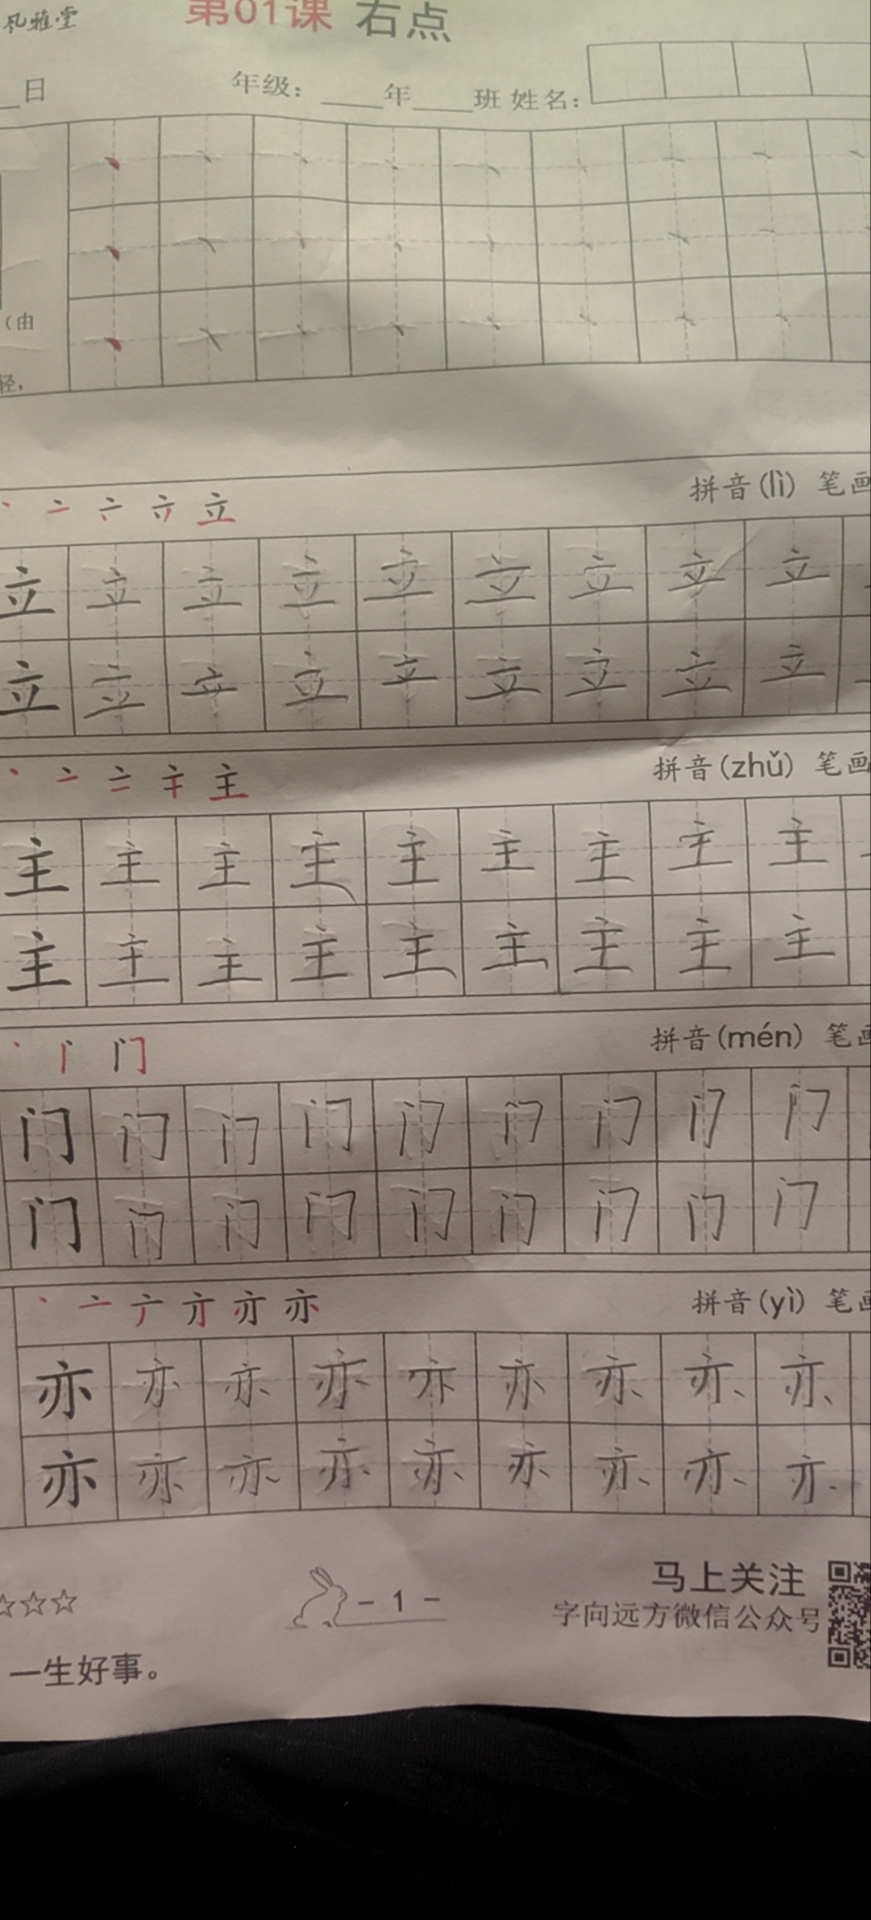 风雅堂 第01课 右点
日 年级： 年 班 姓名：
（由
轻，
立 拼音(lì) 笔画
立 立 立 立 立 立 立 立 立
立 立 立 立 立 立 立 立 立
主 拼音(zhǔ) 笔画
主 主 主 主 主 主 主 主 主
主 主 主 主 主 主 主 主 主
门 拼音(mén) 笔画
门 门 门 门 门 门 门 门 门
门 门 门 门 门 门 门 门 门
亦 拼音(yì) 笔画
亦 亦 亦 亦 亦 亦 亦 亦 亦
亦 亦 亦 亦 亦 亦 亦 亦 亦
☆☆☆ - 1 - 马上关注
字向远方微信公众号
一生好事。